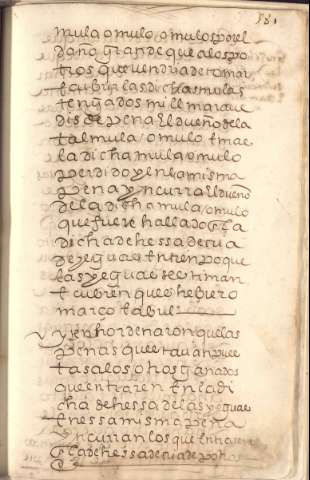 181
mula o mulo o mulos por el
daño grande que a los po
tros que vendria de tomar
e cubrir las dichas mulas
tenga dos mill marave
dis de pena El dueño de la
tal mula o mulo e mas
la dicha mula o mulo
perdido y en la misma
pena yncurra El dueño
de la dicha mula o mulo
que fuere hallado En la
dicha dehessa de cria
de yeguas En tienpo que
las yeguas se estiman
e cubren que es hebrero
março e abril
yten hordenaron que las
penas que estavan pues
tas a los otros ganados
que entraren En la di
cha dehessa de las yeguas
En essa misma pena
yncurran los que Entraren
En la dehessa de cria de potros